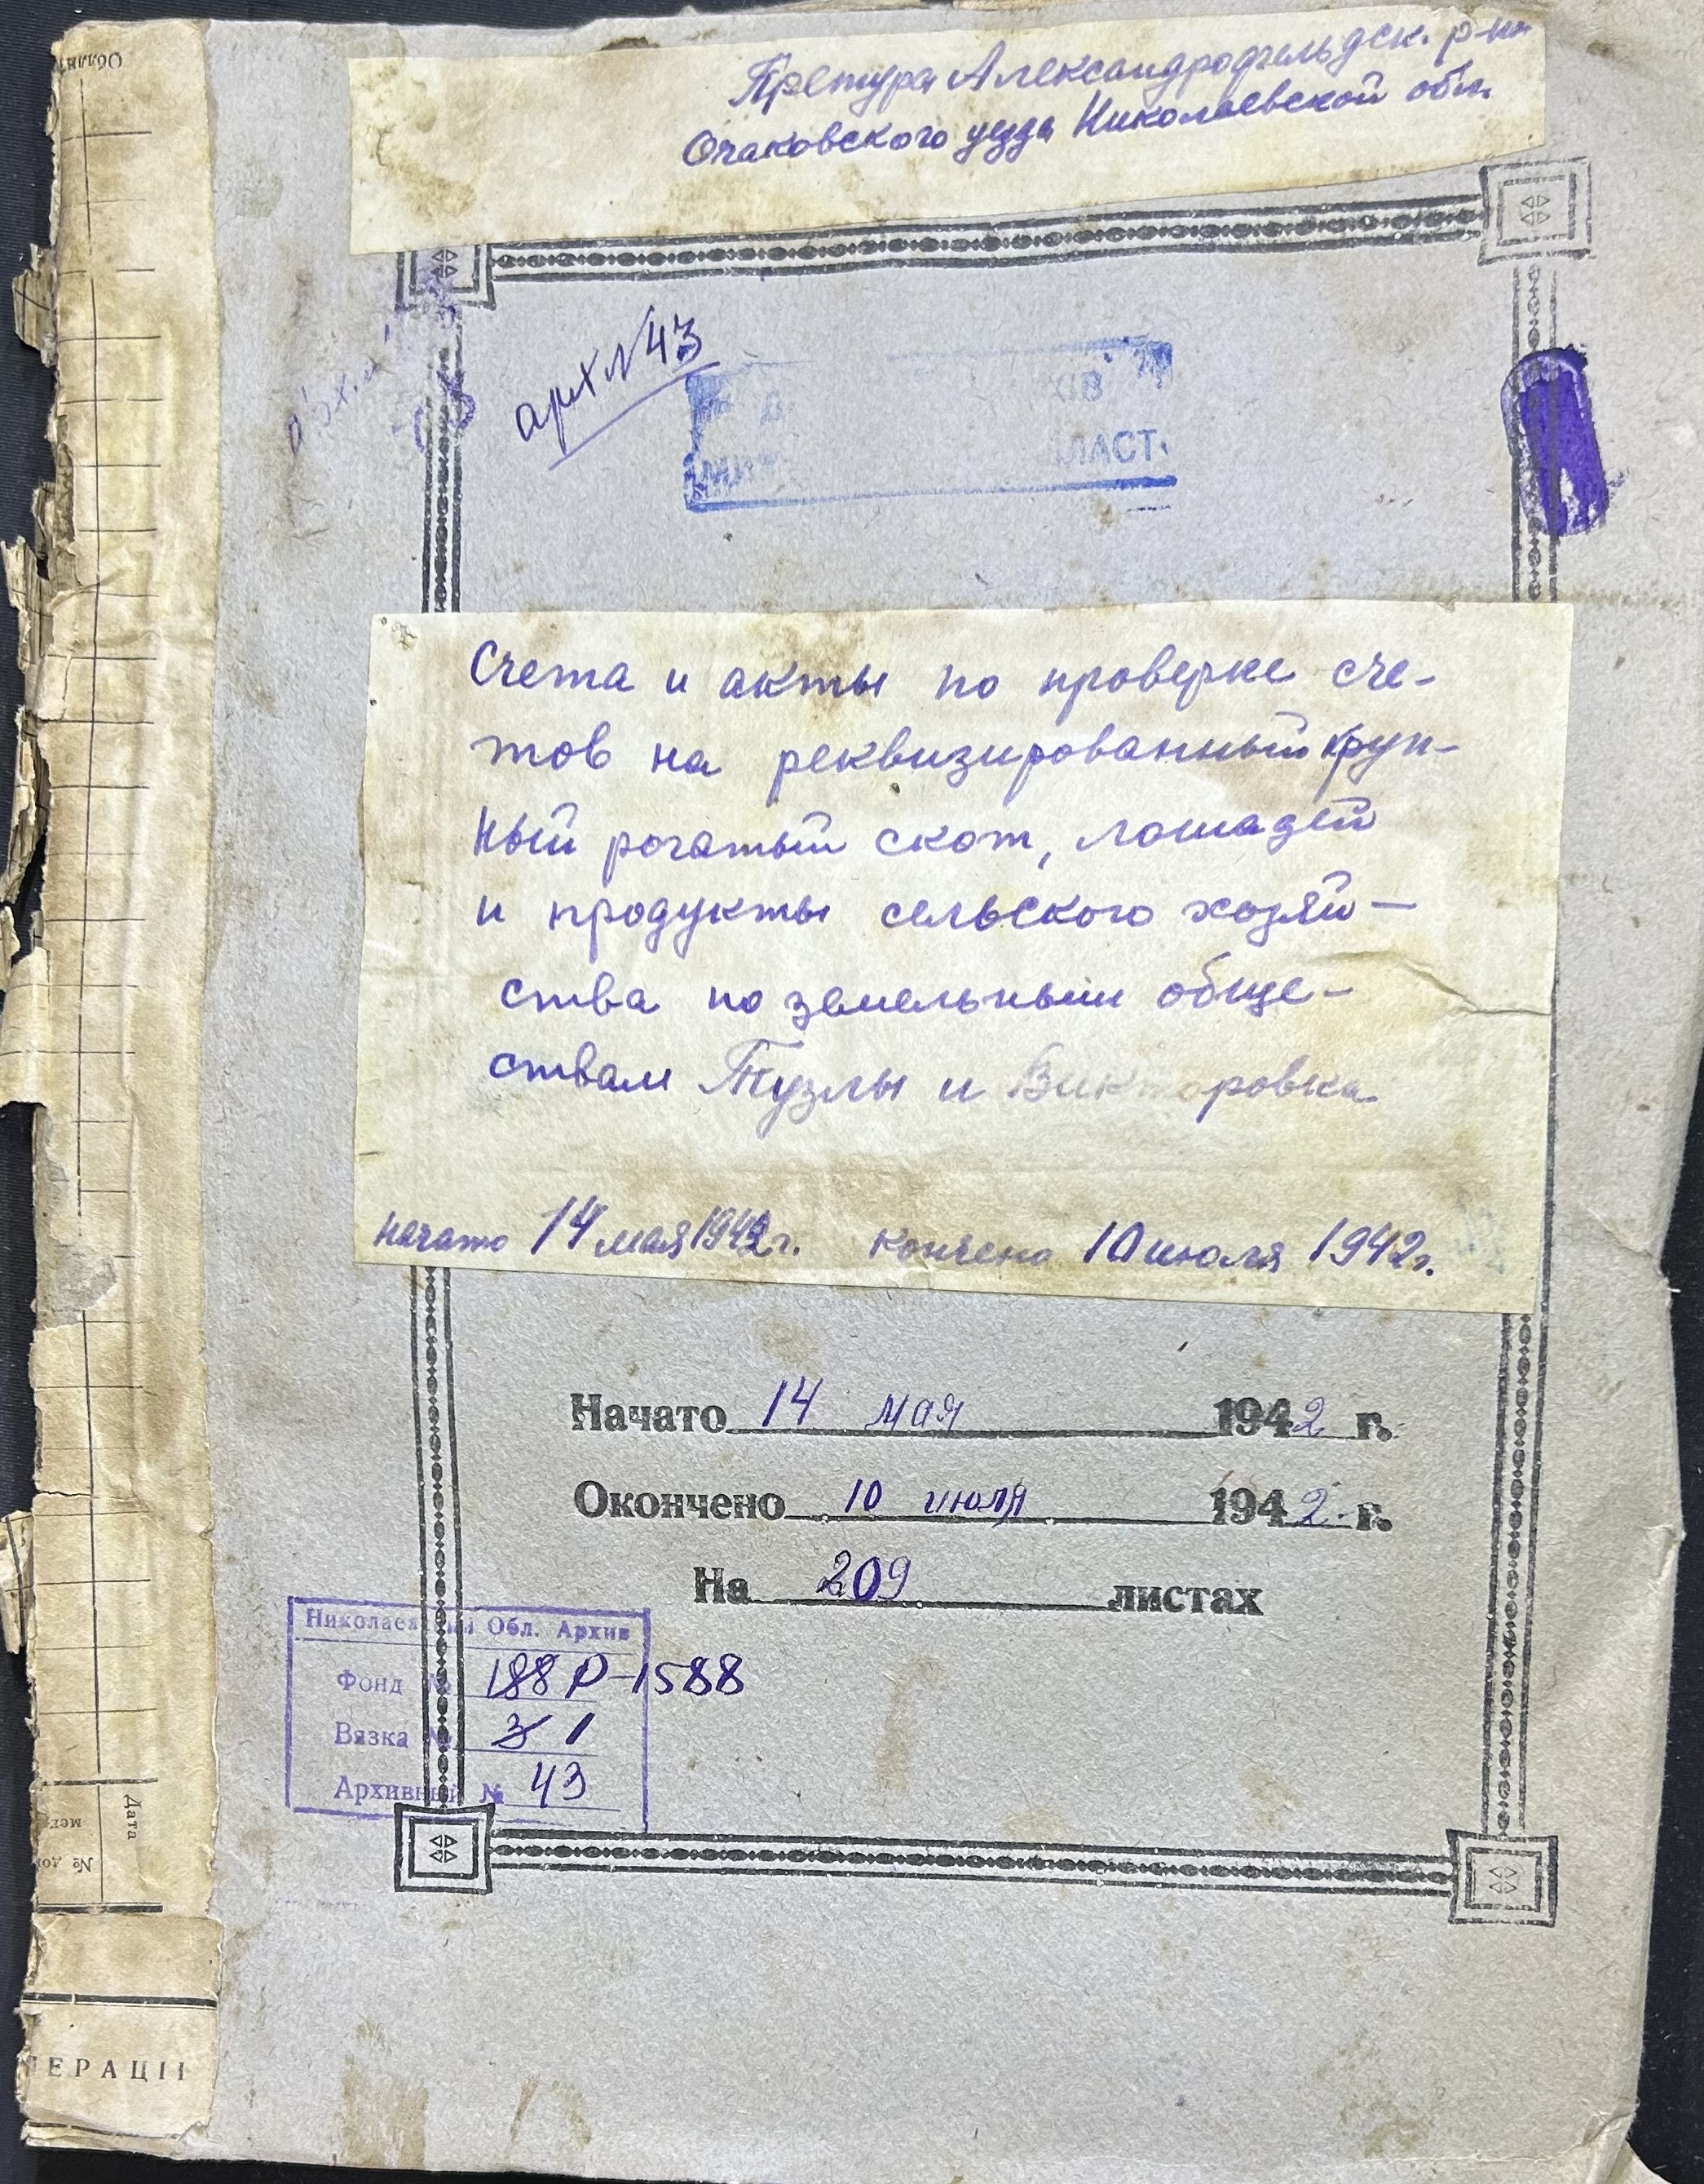 Претура Александрофельдск. р-на
Очаковского уезда Николаевской обл.
арх №43
ЛАСТ.
Счета и акты по проверке сче-
тов на реквизированный круп-
ный рогатый скот, лошадей
и продукты сельского хозяй-
ства по земельным обще-
ствам Тузлы и Викторовка
начато 14 мая 1942 г. кончено 10 июля 1942 г.
Начато 14 мая 1942 г.
Окончено 10 июля 1942 г.
На 209 листах
Николаевский Обл. Архив
Фонд № 188 Р-1588
Вязка № 3 1
Архивный № 43
Дата
ЕРАЦІЇ